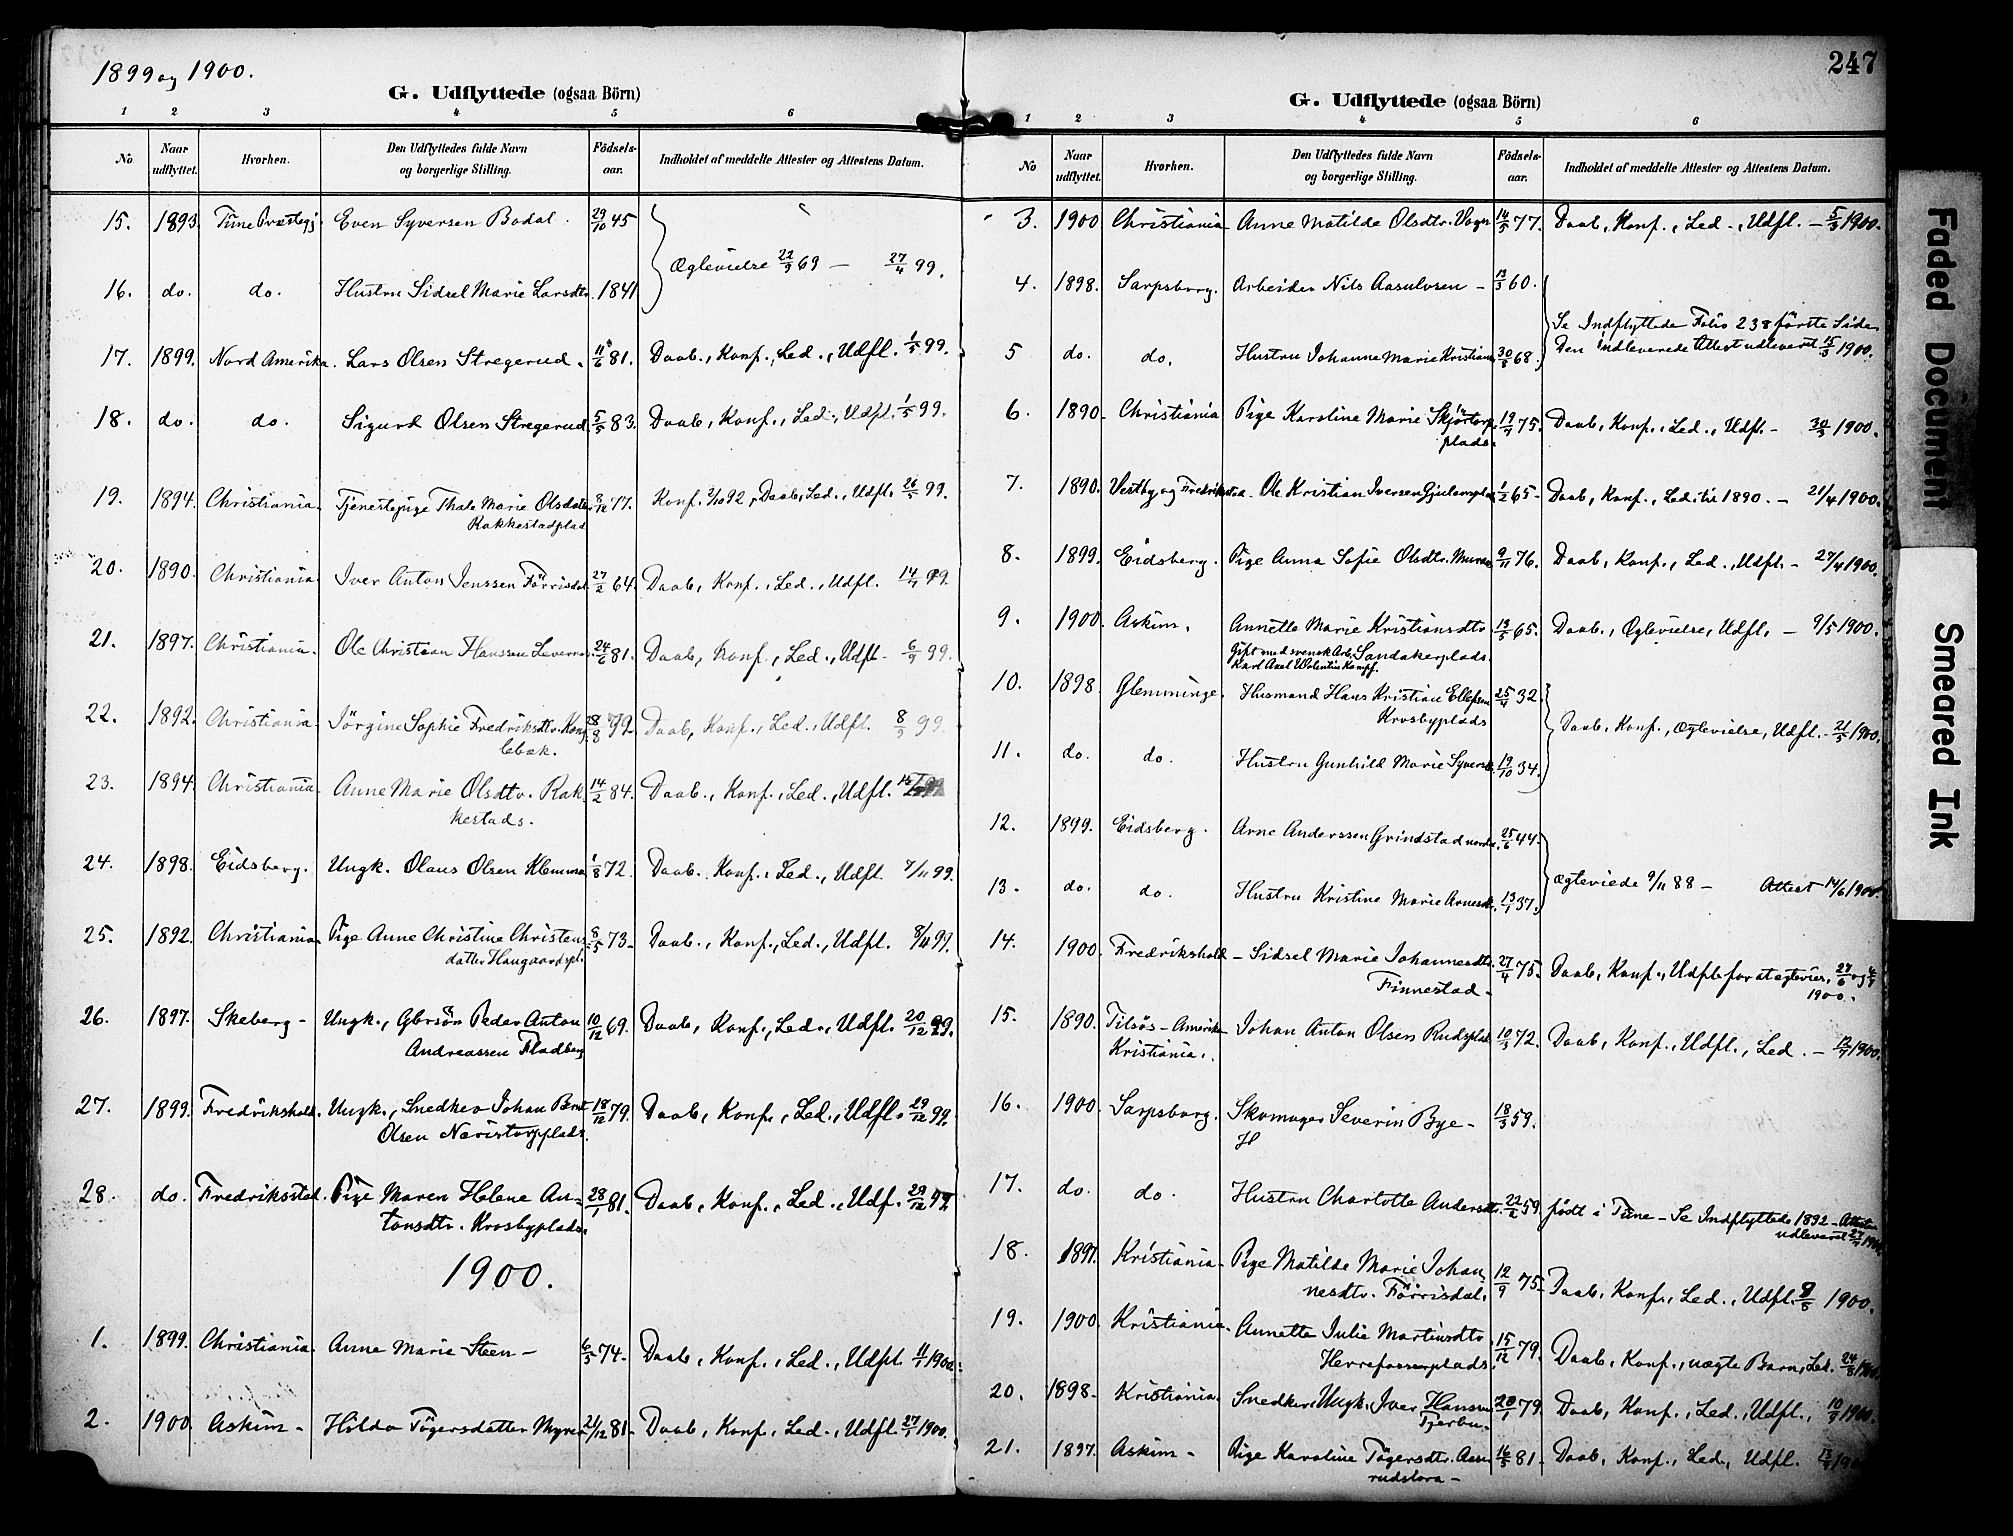 1899 og 1900.
G. Udflyttede (ogsaa Börn)
1 2 3 4 5 6
No Naar udflyttet. Hvorhen. Den Udflyttedes fulde Navn og borgerlige Stilling. Födsels-aar. Indholdet af meddelte Attester og Attestens Datum.
15. 1893. Tune Præstegj. Even Syversen Bodal. 29/10 45
Ægtevielse 22/9 69 — 27/4 99.
16. do. do. Hustru Sidsel Marie Larsdtr. 1841
17. 1899. Nord Amerika. Lars Olsen Stregerud. 11/6 81. Daab., Konf., Led., Udfl. 1/5 99.
18. do. do. Sigurd Olsen Stregerud. 5/5 83. Daab, Konf., Led., Udfl. 1/5 99.
19. 1894. Christiania. Tjenestepige Thale Marie Olsdatter 8/12 77. Konf. 2/10 92, Daab, Led., Udfl. 26/5 99.
Rakkestadplad
20. 1890. Christiania. Iver Anton Jenssen Förrisdal 27/2 64. Daab, Konf., Led., Udfl. 14/7 99.
21. 1897. Christiania. Ole Christian Hanssen 24/6 81. Daab, Konf., Led., Udfl. 6/9 99.
22. 1892. Christiania. Jörgine Sophie Fredriksdtr. Kongs Daab, Konf., Led., Udfl. 8/9 99.
lebæk.
23. 1894. Christiania. Anne Marie Olsdtr. Rak 14/2 84. Daab., Konf., Led., Udfl.
kestads.
24. 1898. Eidsberg. Ungk. Olaus Olsen Klemma 1/8 72. Daab. Konf., Led., Udfl. 7/11 99.
25. 1892. Christiania. Pige Anne Christine Christens 8/5 73. Daab., Konf., Led., Udfl. 8/11 99.
datter Haugaardspl.
26. 1897. Skeberg - Ungk., Gbrsön Peder Anton 10/12 69. Daab, Konf., Led., Udfl. 20/12 99.
Andreassen Fladberg
27. 1899. Fredrikshald. Ungk., Snedker Johan Bernt 18/12 79. Daab, Konf., Led., Udfl. 29/12 99.
Olsen Neristorpplads.
28. do. Fredriksstad. Pige Maren Helene An- 28/1 81. Daab, Konf., Led., Udf. 29/12 99.
tonsdtr. Krosbyplads.
1900.
1. 1899. Christiania. Anne Marie Steen - 6/5 74. Daab, Konf., Led., Udfl. 11/1 1900.
2. 1900. Askim - Hilda Tögersdatter Myrer 21/12 81. Daab, Konf., Led., Udfl. 27/1 1900.
247
G. Udflyttede (ogsaa Börn)
1 2 3 4 5 6
No Naar udflyttet. Hvorhen. Den Udflyttedes fulde Navn og borgerlige Stilling. Födsels-aar. Indholdet af meddelte Attester og Attestens Datum.
3. 1900 Christiania Anne Matilde Olsdtr. Vogn 14/5 77. Daab, Konf., Led., Udfl. - 5/3 1900.
4. 1898. Sarpsborg. Arbeider Nils Aasulvsen - 13/3 60.
Se Indflyttede Folio 238 förste Side
5 do. do. Hustru Johanne Marie Kristians 30/8 68. Den indleverede Attest udleveret 15/3 1900.
6. 1890. Christiania Pige Karoline Marie Skjörtorp 19/9 75. Daab, Konf., Led., Udfl. - 30/3 1900.
plads.
7. 1890. Vestby og Fredrikstad. Ole Kristian Iversen Gjulemplads 1/2 65. Daab, Konf., Led. til 1890. - 21/4 1900.
8. 1899. Eidsberg. Pige Anna Sofie Olsdtr. 9/11 76. Daab, Konf., Led., Udfl. - 27/4 1900.
9. 1900. Askim. Annette Marie Kristiansdtr. 13/5 65. Daab., Ægtevielse, Udfl. - 9/5 1900.
Gift med svensk Arb. Sandakerplads.
Karl Axel Walentin Kampf.
10. 1898. Glemminge. Husmand Hans Kristian Ellefsen 25/4 32.
Krosbyplads
Daab, Konf., Ægtevielse, Udfl. - 21/5 1900.
11. do. do. Hustru Gunhild Marie Syversdtr. 19/10 34.
12. 1899. Eidsberg. Arne Anderssen Grindstad nordre 25/6 44.
Ægteviede 9/11 88 - Attest 14/6 1900.
13. do. do. Hustru Kristine Marie Arnesdtr. 13/1 37.
14. 1900. Fredrikshald - Sidsel Marie Johannesdtr. 27/4 75. Daab, Konf., Udfl. for at ægtevies, 27/6 og
Finnestad - 1900.
15. 1890. Tilsös - Amerika Johan Anton Olsen Rudsplad. 10/3 72. Daab, Konf., Udfl., Led. - 12/7 1900.
Kristiania.
16. 1900. Sarpsborg. Skomager Severin Bye - 18/3 59.
H
17. do. do. Hustru Charlotte Andersdtr. 22/2 59. født i Tune - Se Indflyttede 1892 - Attesten
udleveret 27/7 1900.
18. 1897. Kristiania - Pige Matilde Marie Johan 12/9 75. Daab, Konf., Led., Udfl. 1900.
nesdtr. Förrisdal.
19. 1900. Kristiania. Annette Julie Martinsdtr. 15/12 79. Daab, Konf., uægte Barn, Led. 24/8 1900.
Herrefosserplads.
20. 1898. Kristiania. Snedker, Ungk. Iver Hansen 20/1 79. Daab, Konf., Led., Udfl., 10/9 1900.
Tjerbu-
21. 1897. Askim - Pige Karoline Tögersdtr. Aase 16/5 81. Daab, Konf., Led, Udfl.
rudstora -
Faded Document
Smeared Ink